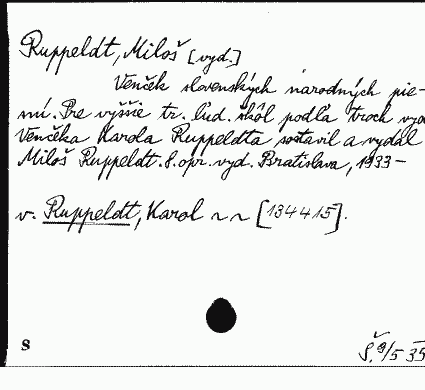 Ruppeldt, Miloš [vyd.]
Venček slovenských národných pie-
sní. Pre vyššie tr. ľud. škôl podľa troch vyd.
Venčeka Karola Ruppeldta sostavil a vydal
Miloš Ruppeldt. 8. opr. vyd. Bratislava, 1933-
v. Ruppeldt, Karol ~ ~ [134415].
S